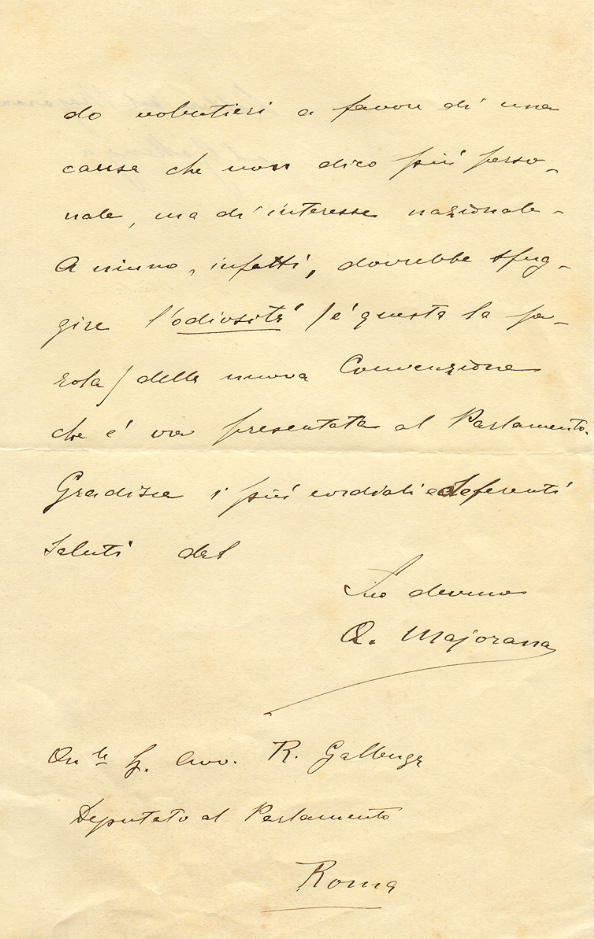 do volentieri a favore di una
causa che non dico più perso-
nale, ma di interesse nazionale-
A niuno, infatti, dovrebbe sfug-
gire l'odiosità /è questa la pa-
rola/ della nuova Convenzione
che è ora presentata al Parlamento.
Gradisca i più cordiali e deferenti
saluti del
Suo devmo
Q. Majorana
On.le Avv. R. Gallenga
Deputato al Parlamento
Roma